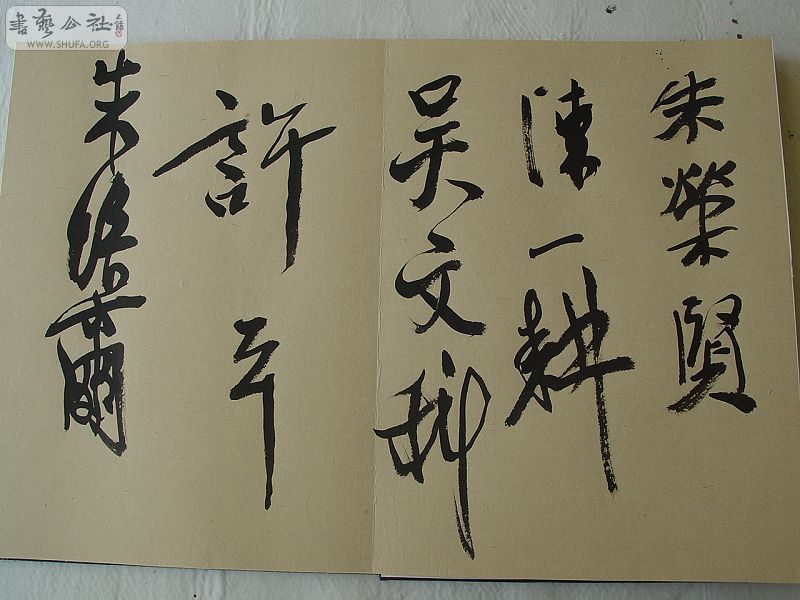 書藝公社
WWW.SHUFA.ORG
朱榮賢
陳一耕
吳文彬
許平
朱培爾